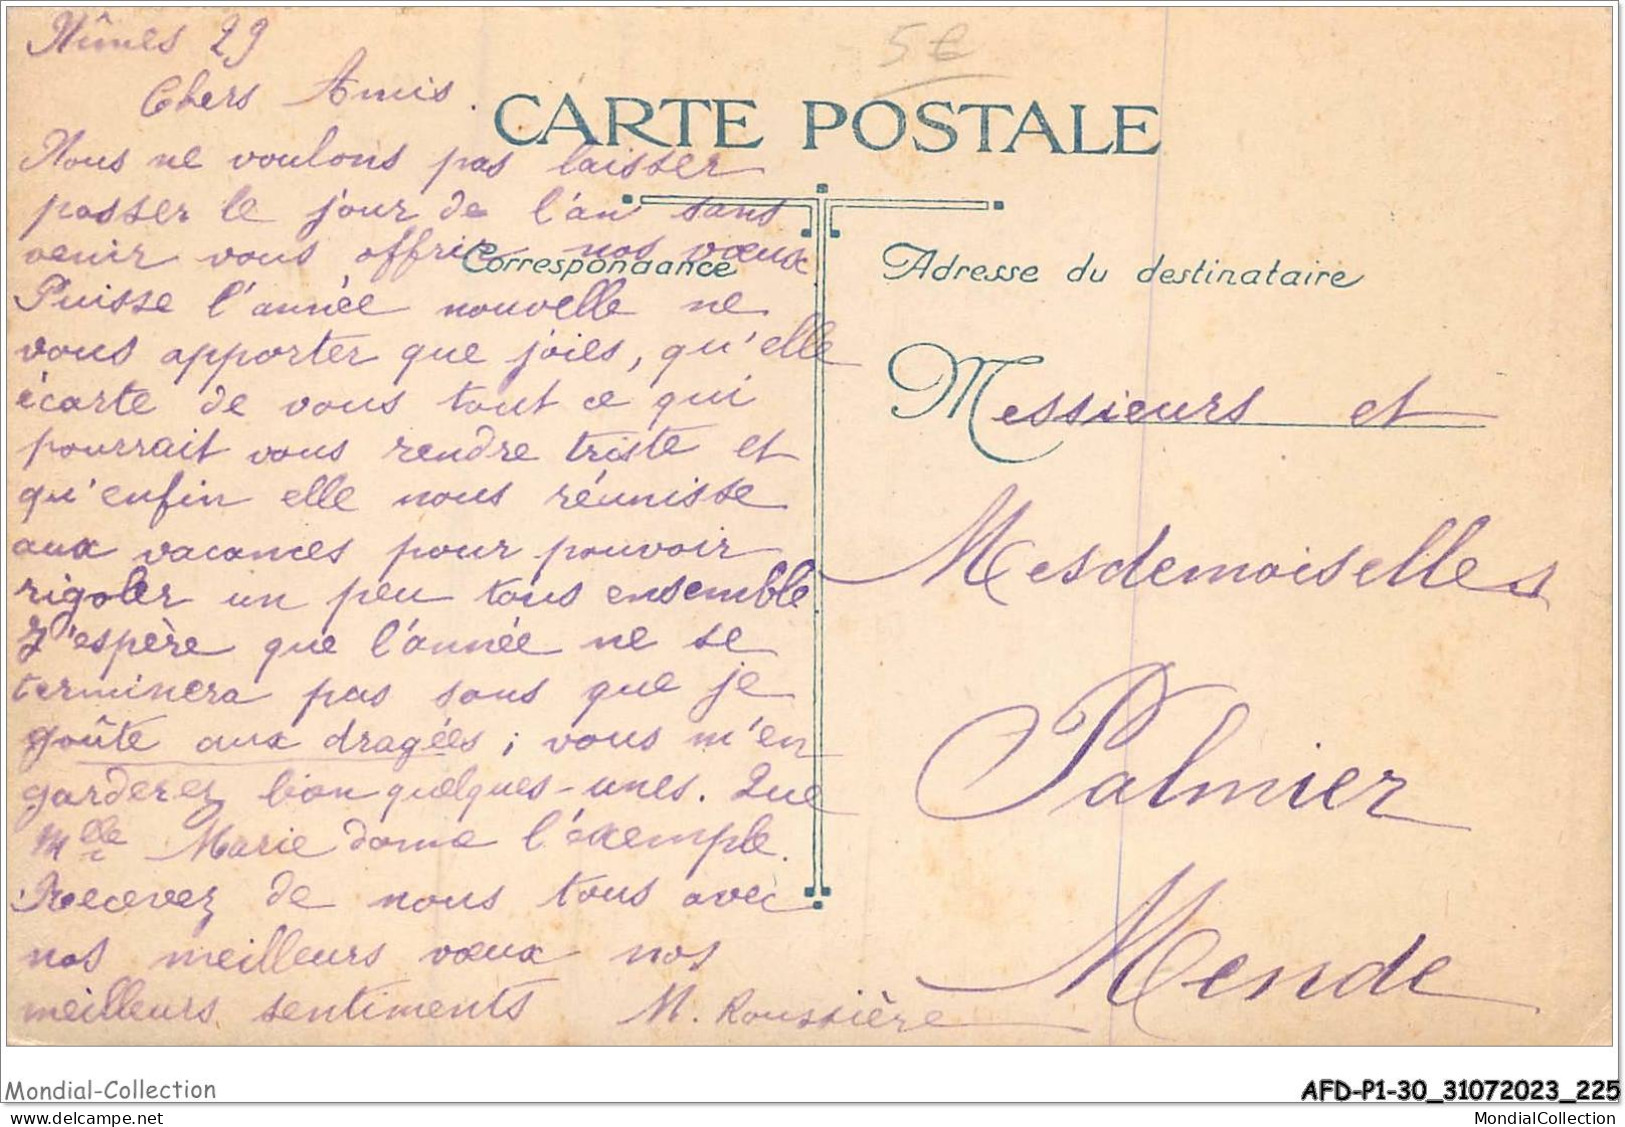 Nîmes 29
Chers Amis.
Nous ne voulons pas laisser
passer le jour de l'an sans
venir vous offrir nos vœux
Puisse l'année nouvelle ne
vous apporter que joies, qu'elle
écarte de vous tout ce qui
pourrait vous rendre triste et
qu'enfin elle nous réunisse
aux vacances pour pouvoir
rigoler un peu tous ensemble
J'espère que l'année ne se
terminera pas sans que je
goûte aux dragées ; vous m'en
garderez bien quelques-unes. Que
Mlle Marie donne l'exemple.
Recevez de nous tous avec
nos meilleurs vœux nos
meilleurs sentiments M. Roussière
5€
CARTE POSTALE
Correspondance
Adresse du destinataire
Messieurs et
Mesdemoiselles
Palmier
Mende
Mondial-Collection
AFD-P1-30_31072023_225
www.delcampe.net
MondialCollection